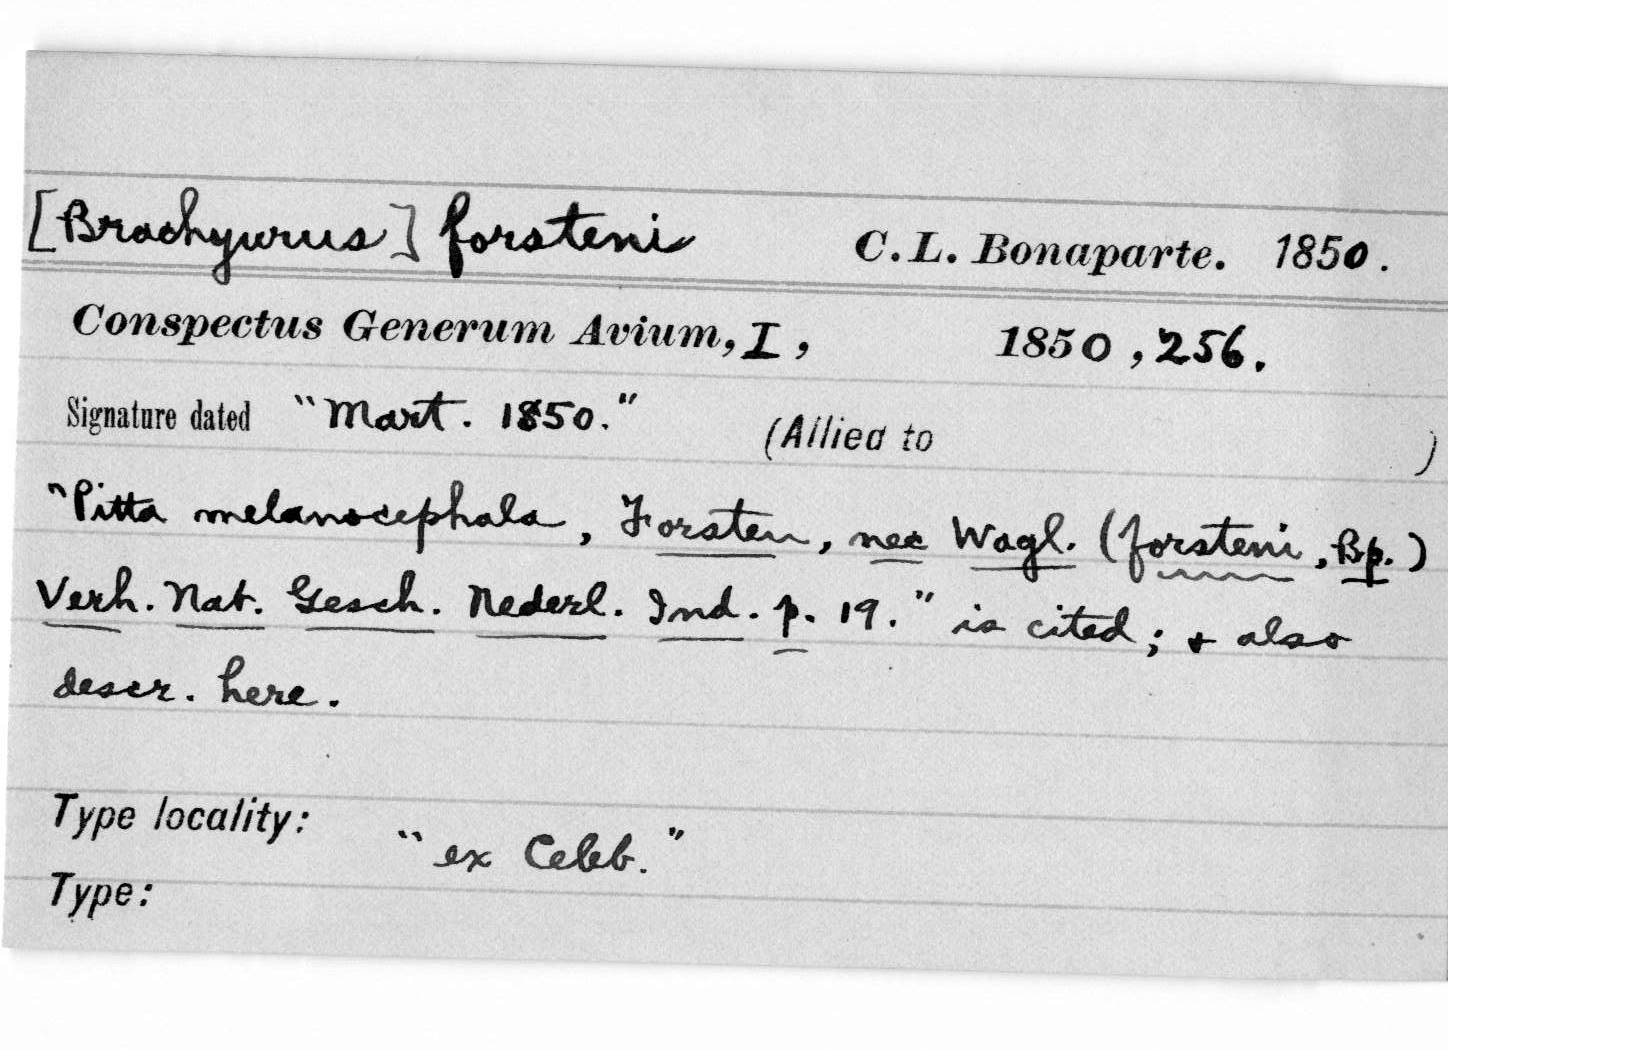 [Brachyurus] forsteni C.L. Bonaparte. 1850.
Conspectus Generum Avium, I, 1850, 256.
Signature dated "Mart. 1850." (Allied to )
"Pitta melanocephala, Forsten, nec Wagl. (forsteni, Bp.)
Verh. Nat. Gesch. Nederl. Ind. p. 19." is cited; & also
descr. here.
Type locality: "ex Celeb."
Type: